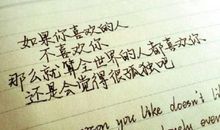 如果你喜欢的人
不喜欢你
那么就算全世界的人都喜欢你
还是会觉得很孤独吧
you like doesn't li
ever